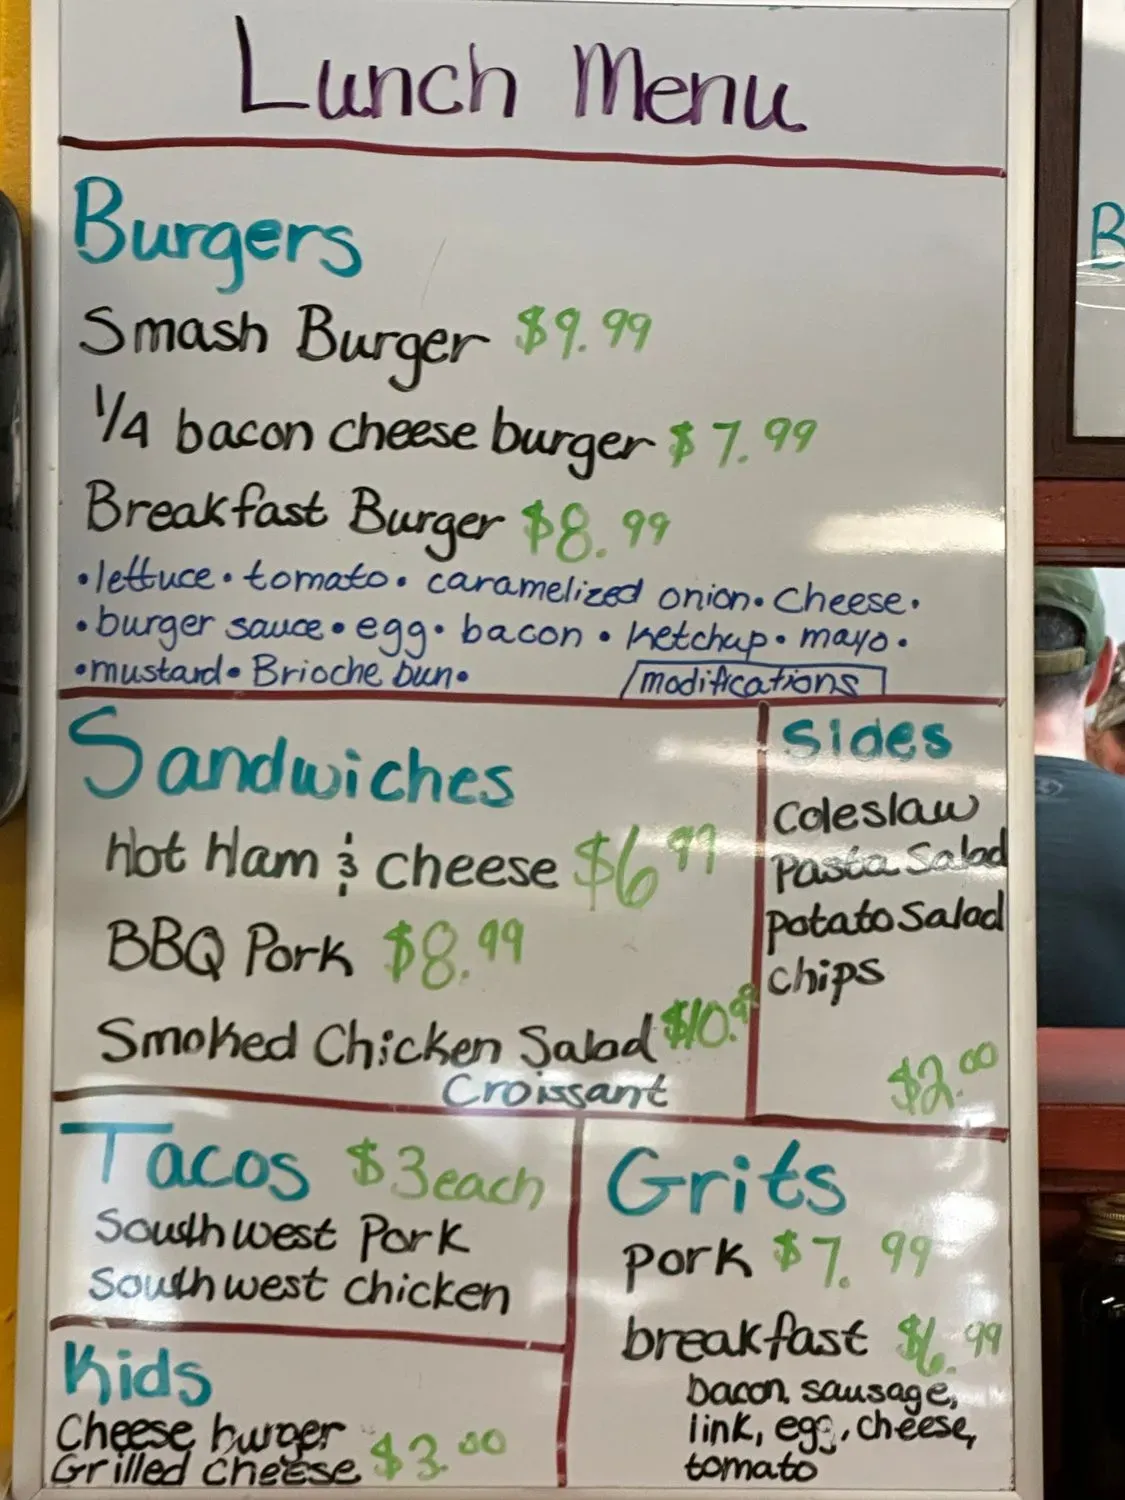 Lunch Menu
Burgers
Smash Burger $9.99
1/4 bacon cheese burger $7.99
Breakfast Burger $8.99
•lettuce•tomato•caramelized onion•cheese•
•burger sauce•egg•bacon•ketchup•mayo•
•mustard•Brioche bun•
modifications
Sandwiches
Hot Ham & cheese $6.99
BBQ Pork $8.99
Smoked Chicken Salad $10.99
Croissant
Sides
Coleslaw
Pasta Salad
Potato Salad
chips
$2.00
Tacos $3 each
Southwest Pork
Southwest chicken
Grits
pork $7.99
breakfast $6.99
bacon, sausage,
link, egg, cheese,
tomato
Kids
Cheese burger
Grilled cheese $3.00
B